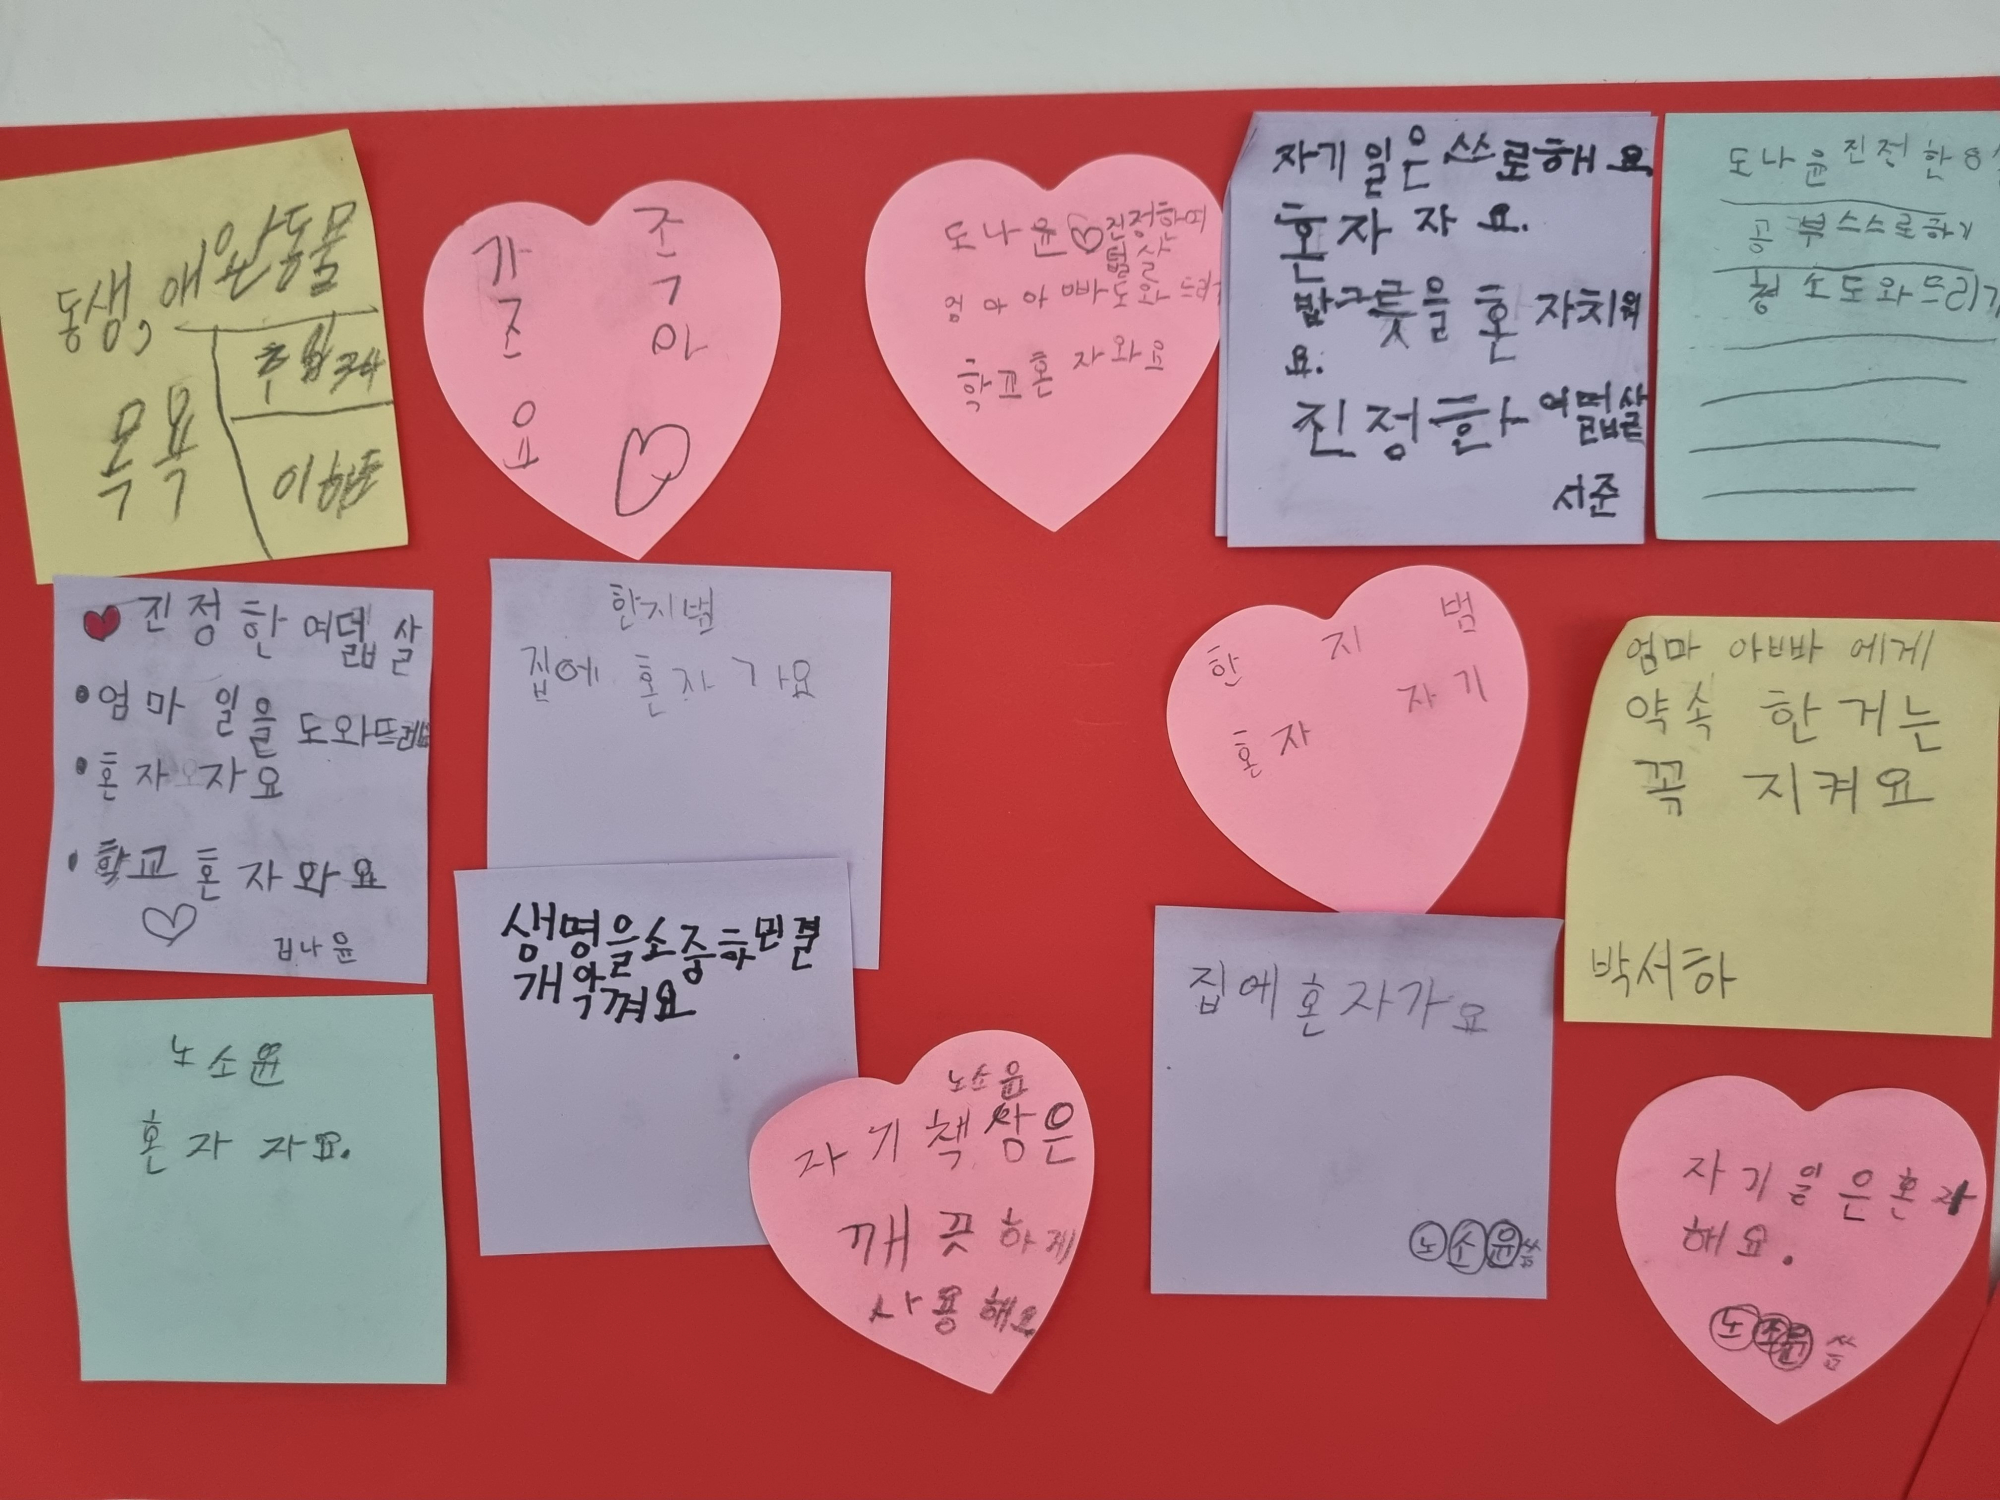 동생, 애완동물
목욕
가조요
조구아
도나윤 진정한여덟살
엄마아빠도와드리
학교혼자와요
자기일은쓰로해요
혼자자요.
밥그릇을혼자치워
요.
진정한여덟살
서준
도나윤진정한
공부스스로하기
청소도와드리기
진정한여덟살
엄마일을도와뜨려요
혼자자요
학교혼자와요
김나윤
한지범
집에 혼자 가요
한지범
혼자 자기
엄마 아빠 에게
약속 한거는
꼭 지켜요
박서하
생명을소중하
개
껴요
집에혼자가요
노소윤씀
노소윤
혼자 자요.
노소윤
자기책상은
깨끗하게
사용해요
자기일은혼자
해요.
노소윤씀